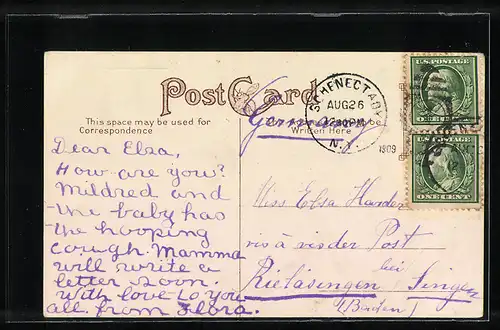 Post Card
This space may be used for
Correspondence
Germany
be
Written Here
SCHENECTADY
AUG 26
PM
N.Y.
1909
U.S. POSTAGE
U.S. POSTAGE
ONE CENT
Dear Elsa,
How are you?
Mildred and
the baby has
the hooping
cough. Mamma
will write a
letter soon.
With love to you
all from Flora.
Miss Elsa Harder
vis à vis der Post
Rielasingen bei Singen
(Baden)